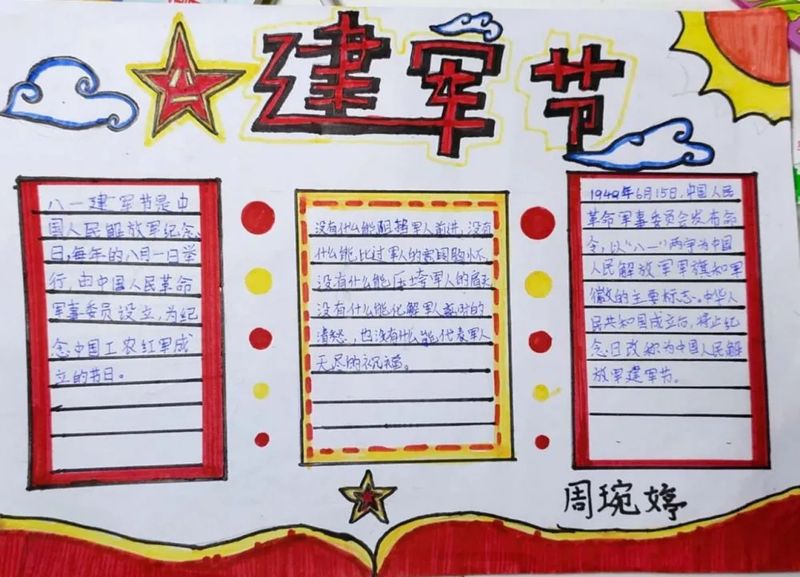 八一
建军节
八一建军节是中
国人民解放军纪念
日,每年的八月一日举
行,由中国人民革命
军事委员设立,为纪
念中国工农红军成
立的节日。
没有什么能阻挡军人前进,没有
什么能比过军人的爱国胸怀,
没有什么能压垮军人的肩
没有什么能化解军人的
情怒,也没有什么能代表军人
无尽的祝福。
1949年6月15日,中国人民
革命军事委员会发布命
令,以“八一”两字为中国
人民解放军军旗和军
徽的主要标志。中华人
民共和国成立后,将止纪
念日改称为中国人民解
放军建军节。
周琬婷